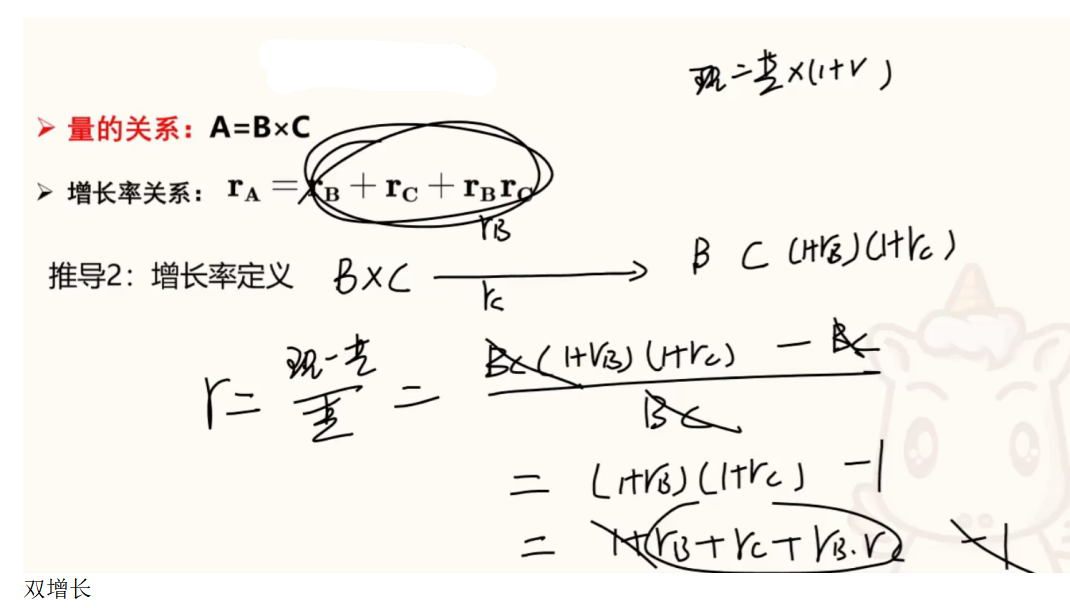 现=基×(1+r)
➢ 量的关系：A=B×C
➢ 增长率关系：r_A = r_B + r_C + r_B r_C
r_B
推导2：增长率定义 B×C ⟶ B C (1+r_B)(1+r_C)
r_C
r = (现-基)/基 = (BC(1+r_B)(1+r_C) - BC)/(BC)
= (1+r_B)(1+r_C) -1
= 1+r_B+r_C+r_B·r_C -1
双增长